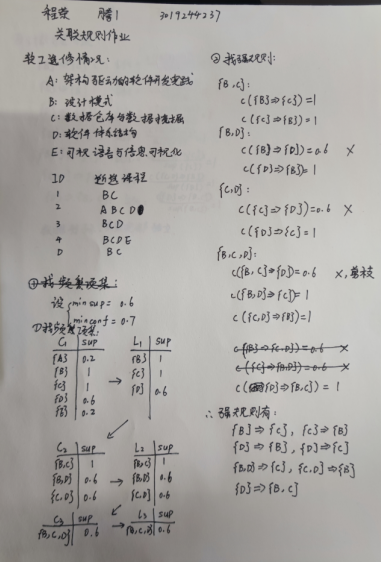 程荣 腾1 3019244237
关联规则作业
软工选修情况:
A: 架构驱动的软件开发实践
B: 设计模式
C: 数据仓库与数据挖掘
D: 软件体系结构
E: 可视语言与信息可视化
ID 所选课程
1 BC
2 ABCD
3 BCD
4 BCDE
D BC
①找频繁项集:
设 {minsup = 0.6
minconf = 0.7
①找频繁项集:
C₁ sup L₁ sup
{A} 0.2 {B} 1
{B} 1 {C} 1
{C} 1 → {D} 0.6
{D} 0.6
{E} 0.2
C₂ sup L₂ sup
{B,C} 1 {B,C} 1
{B,D} 0.6 → {B,D} 0.6
{C,D} 0.6 {C,D} 0.6
C₃ sup L₃ sup
{B,C,D} 0.6 → {B,C,D} 0.6
②找强规则:
{B,C}:
c({B}⇒{C})=1
c({C}⇒{B})=1
{B,D}:
c({B}⇒{D})=0.6 ×
c({D}⇒{B})=1
{C,D}:
c({C}⇒{D})=0.6 ×
c({D}⇒{C})=1
{B,C,D}:
c({B,C}⇒{D})=0.6 ×,剪枝
c({B,D}⇒{C})=1
c({C,D}⇒{B})=1
c({B}⇒{C,D})=0.6 ×
c({C}⇒{B,D})=0.6 ×
c({D}⇒{B,C})=1
∴ 强规则有:
{B}⇒{C}, {C}⇒{B}
{D}⇒{B}, {D}⇒{C}
{B,D}⇒{C}, {C,D}⇒{B}
{D}⇒{B,C}